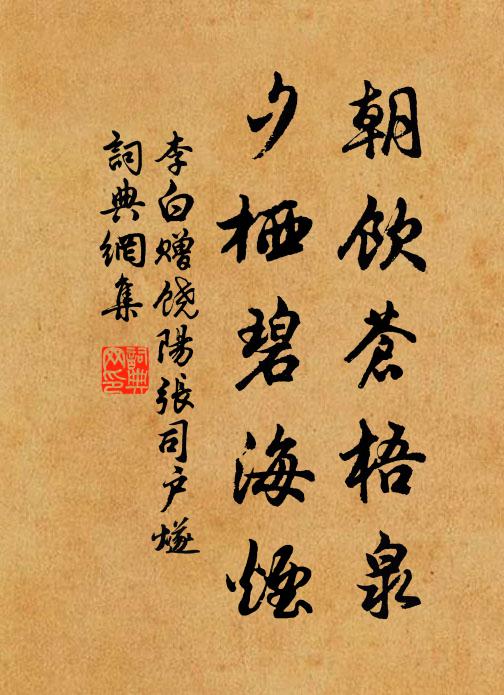 朝飲蒼梧泉
夕栖碧海煙
李白赠饶陽張司户燧
詞典網集
詞典网印